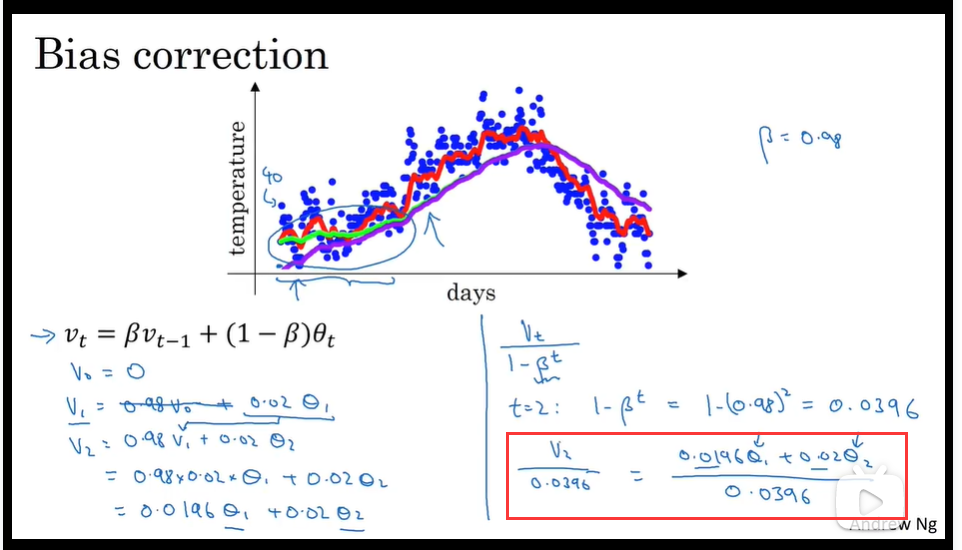 Bias correction
β = 0.98
40
temperature
days
→ vₜ = βvₜ₋₁ + (1 − β)θₜ
V₀ = 0
V₁ = 0.98 V₀ + 0.02 θ₁
V₂ = 0.98 V₁ + 0.02 θ₂
= 0.98 x 0.02 x θ₁ + 0.02 θ₂
= 0.0196 θ₁ + 0.02 θ₂
Vₜ
1 - βᵗ
t=2: 1 - βᵗ = 1 - (0.98)² = 0.0396
V₂ = 0.0196 θ₁ + 0.02 θ₂
0.0396 0.0396
Andrew Ng